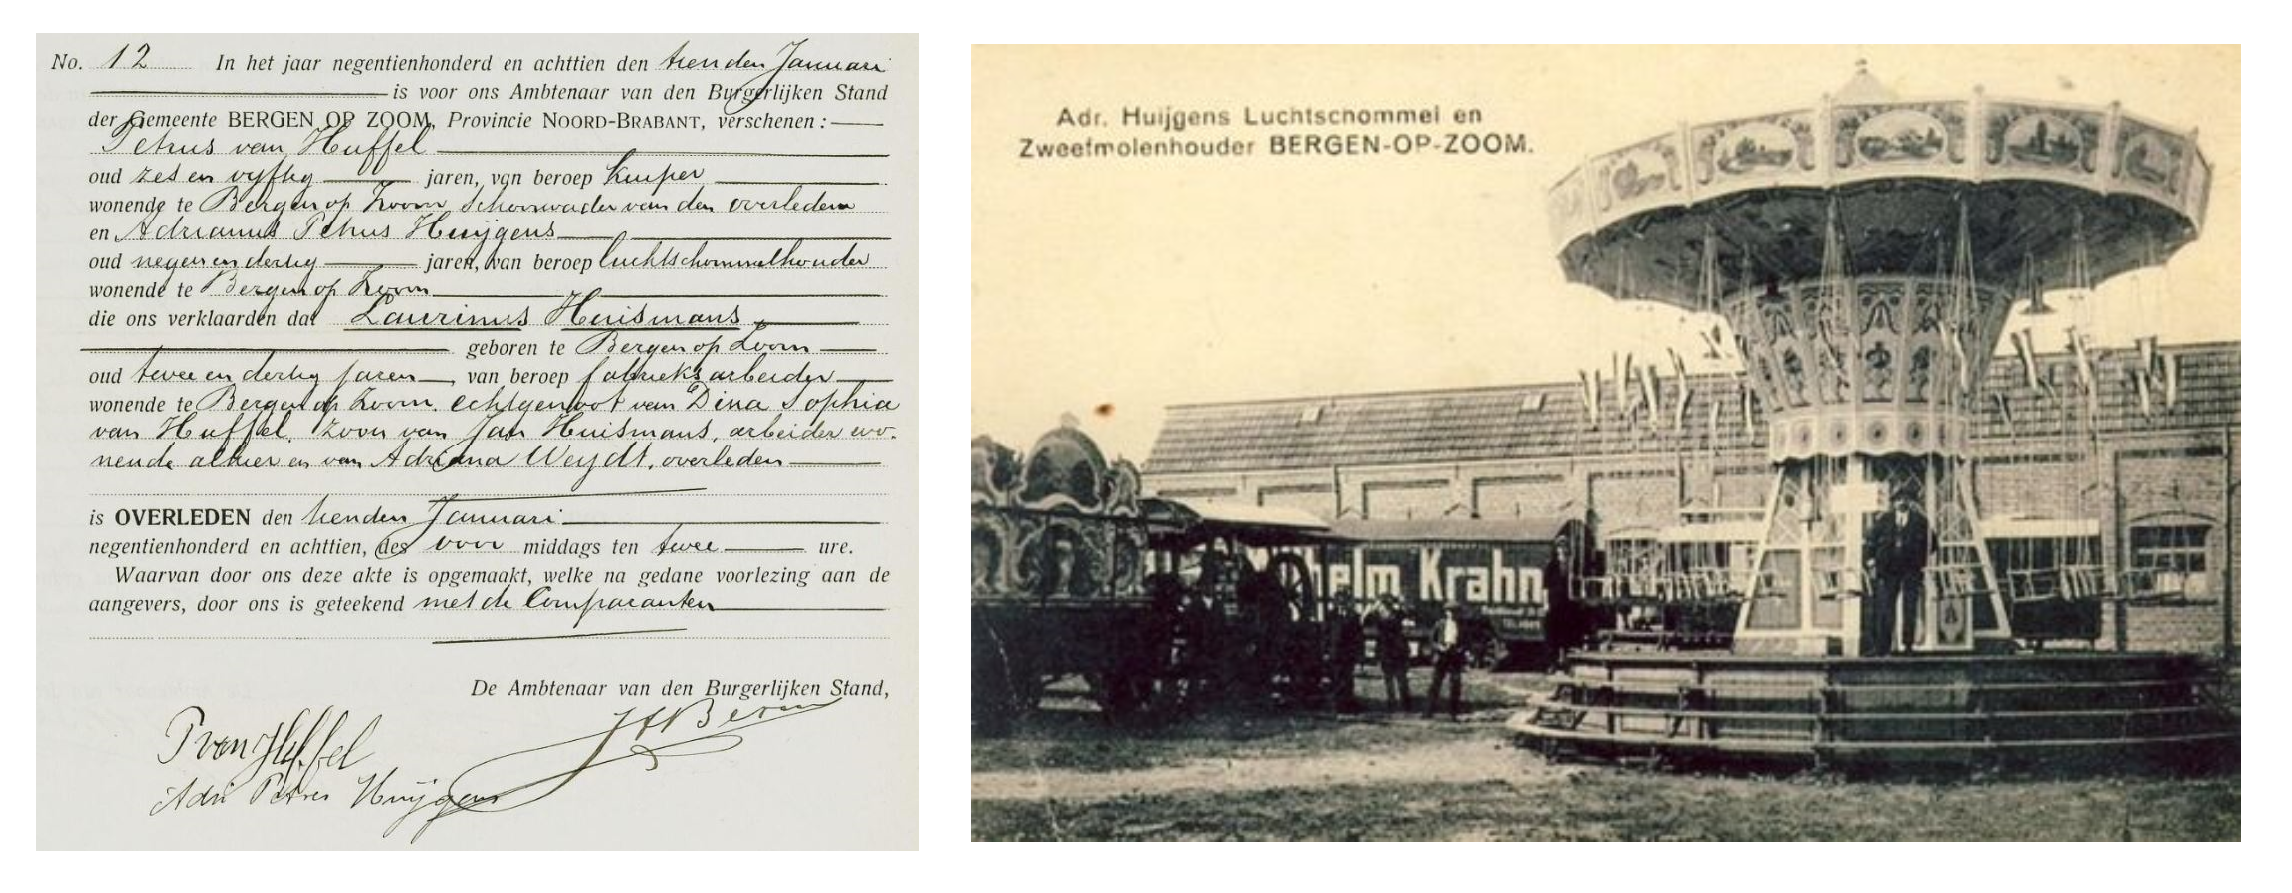 No. 12 In het jaar negentienhonderd en achttien den tienden Januari
is voor ons Ambtenaar van den Burgerlijken Stand
der Gemeente BERGEN OP ZOOM, Provincie NOORD-BRABANT, verschenen :
Petrus van Huffel
oud zes en vyftig jaren, van beroep kuiper
wonende te Bergen op Zoom, schoonvader van den overledene
en Adrianus Petrus Huijgens
oud negen en dertig jaren, van beroep luchtschommelhouder
wonende te Bergen op Zoom
die ons verklaarden dat Laurinus Huismans,
geboren te Bergen op Zoom
oud twee en dertig jaren, van beroep fabrieksarbeider
wonende te Bergen op Zoom, echtgenoot van Dina Sophia
van Huffel, zoon van Jan Huismans, arbeider wo-
nende alhier en van Adriana Weydt, overleden
is OVERLEDEN den tienden Januari
negentienhonderd en achttien, des voor middags ten twee ure.
Waarvan door ons deze akte is opgemaakt, welke na gedane voorlezing aan de
aangevers, door ons is geteekend met de Comparanten
De Ambtenaar van den Burgerlijken Stand,
P van Huffel
Adri Petrus Huijgens
Adr. Huijgens Luchtschommel en
Zweefmolenhouder BERGEN-OP-ZOOM.
helm Krahn